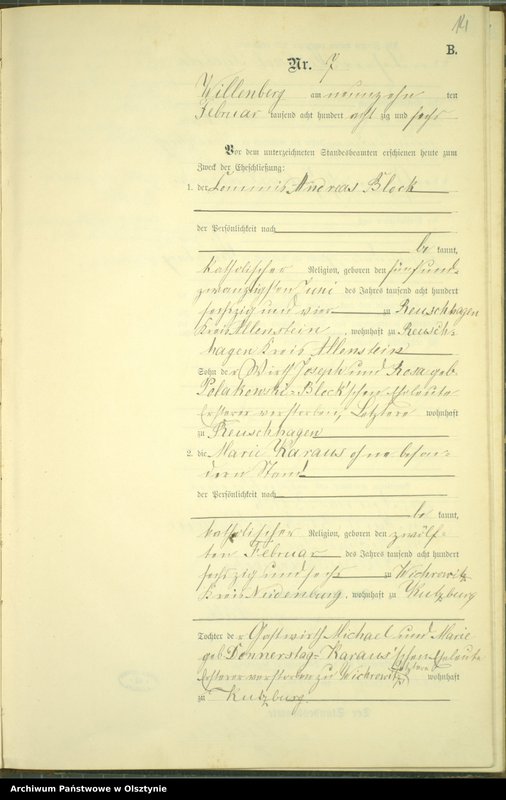 141
B.
Nr. 7
Willenberg am neunzehn ten
Februar tausend acht hundert acht zig und sechs
Vor dem unterzeichneten Standesbeamten erschienen heute zum
Zweck der Eheschließung:
1. der Commis Andreas Block
der Persönlichkeit nach
be kannt,
katholischer Religion, geboren den fünfund-
zwanzigsten Juni des Jahres tausend acht hundert
sechszig und vier zu Reuschhagen
Kreis Allenstein, wohnhaft zu Reusch-
hagen Kreis Allenstein
Sohn der Wirth Joseph und Rosa geb.
Polakowski-Block'schen Eheleute
Ersterer verstorben, Letztere wohnhaft
zu Reuschhagen
2. die Marie Karaus ohne beson-
dern Stand
der Persönlichkeit nach
be kannt,
katholischer Religion, geboren den zwölf-
ten Februar des Jahres tausend acht hundert
sechszig und sechs zu Wichrowitz
Kreis Neidenburg, wohnhaft zu Kutzburg
Tochter der Gastwirth Michael und Marie
geb. Donnerstag-Karaus'schen Eheleute
Ersterer verstorben zu Wichrowitz Letztere wohnhaft
zu Kutzburg
Archiwum Państwowe w Olsztynie